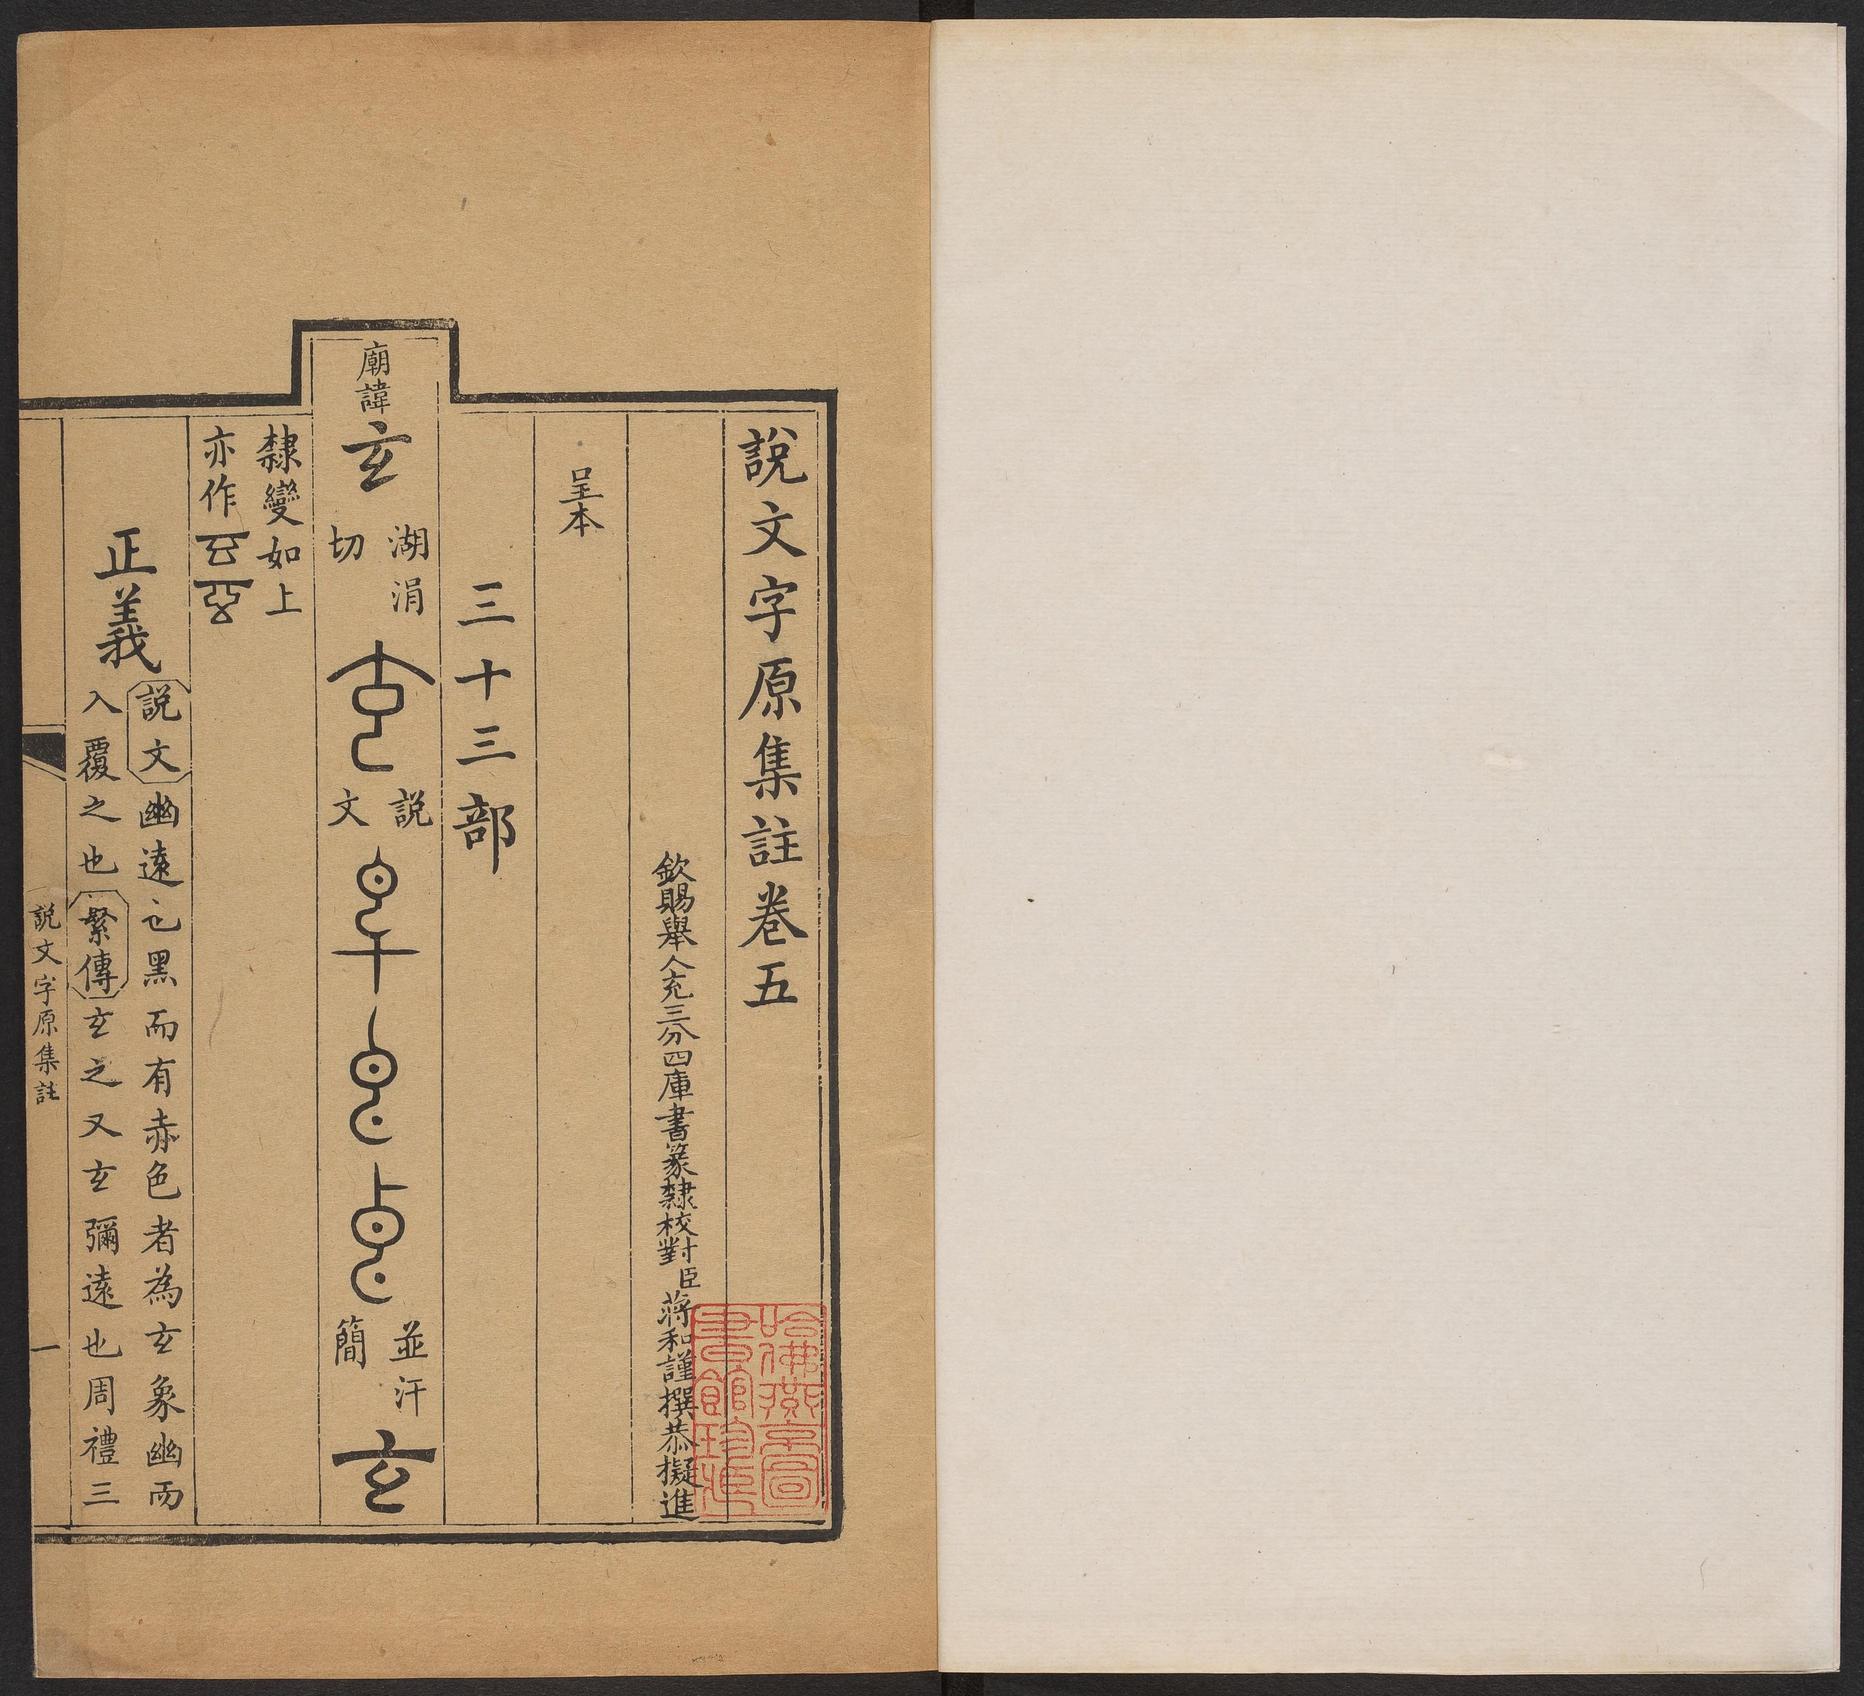 說文字原集註卷五
欽賜舉人充三分四庫書篆隸校對臣蔣和謹撰恭擬進
呈本
三十三部
廟諱玄 湖涓切 說文 並汗簡 玄
隸變如上
亦作
正義 說文 幽遠也黑而有赤色者為玄象幽而
入覆之也 繫傳 玄之又玄彌遠也周禮三
說文字原集註 一
哈佛燕京圖書館珍藏